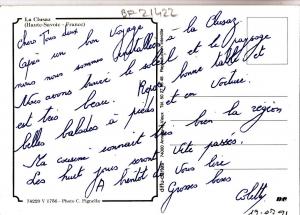 BF 21422
La Clusaz
(Haute-Savoie - France)
Chers Tous deux
Après un bon voyage
nous nous sommes installés à La Clusaz
Nous avons trouvé le soleil et le paysage
est très beau. Repos, bonne table et
belles balades à pieds et en voiture.
Ma cousine connait très bien la région
Les huit jours seront vite passés.
A bientôt de vous lire
Grosses bises
Colette
74220 V 1756 - Photo C. Pignella